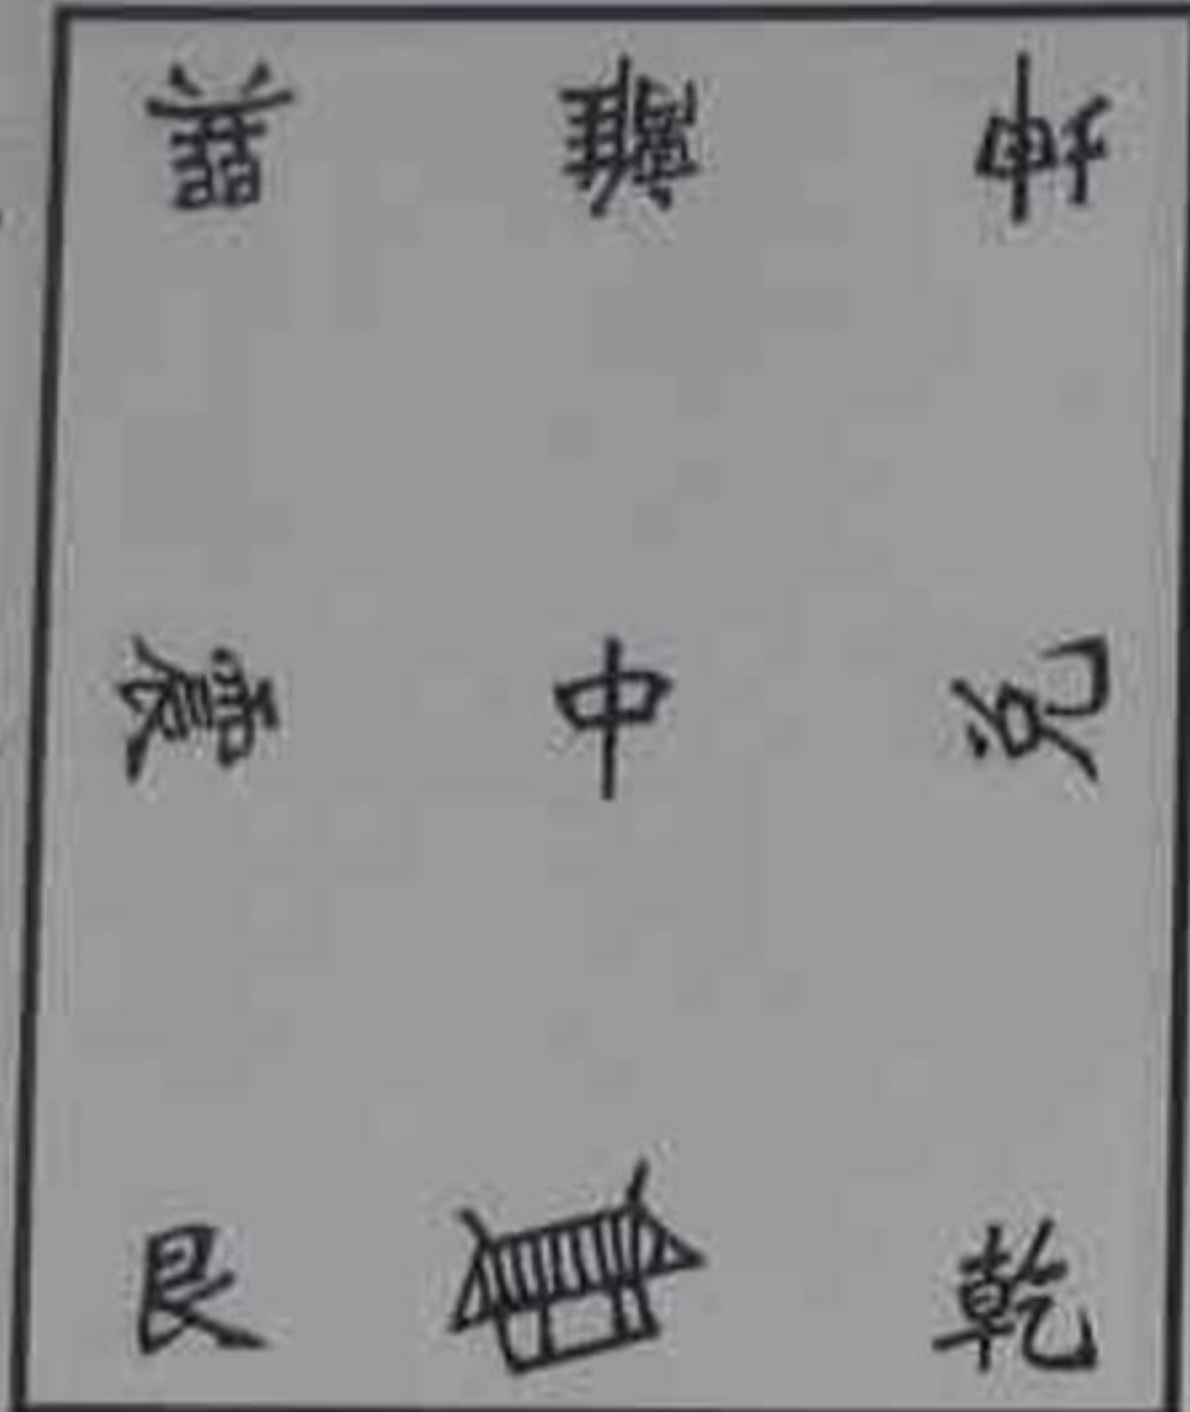 巽 離 坤
震 中 兌
艮 乾